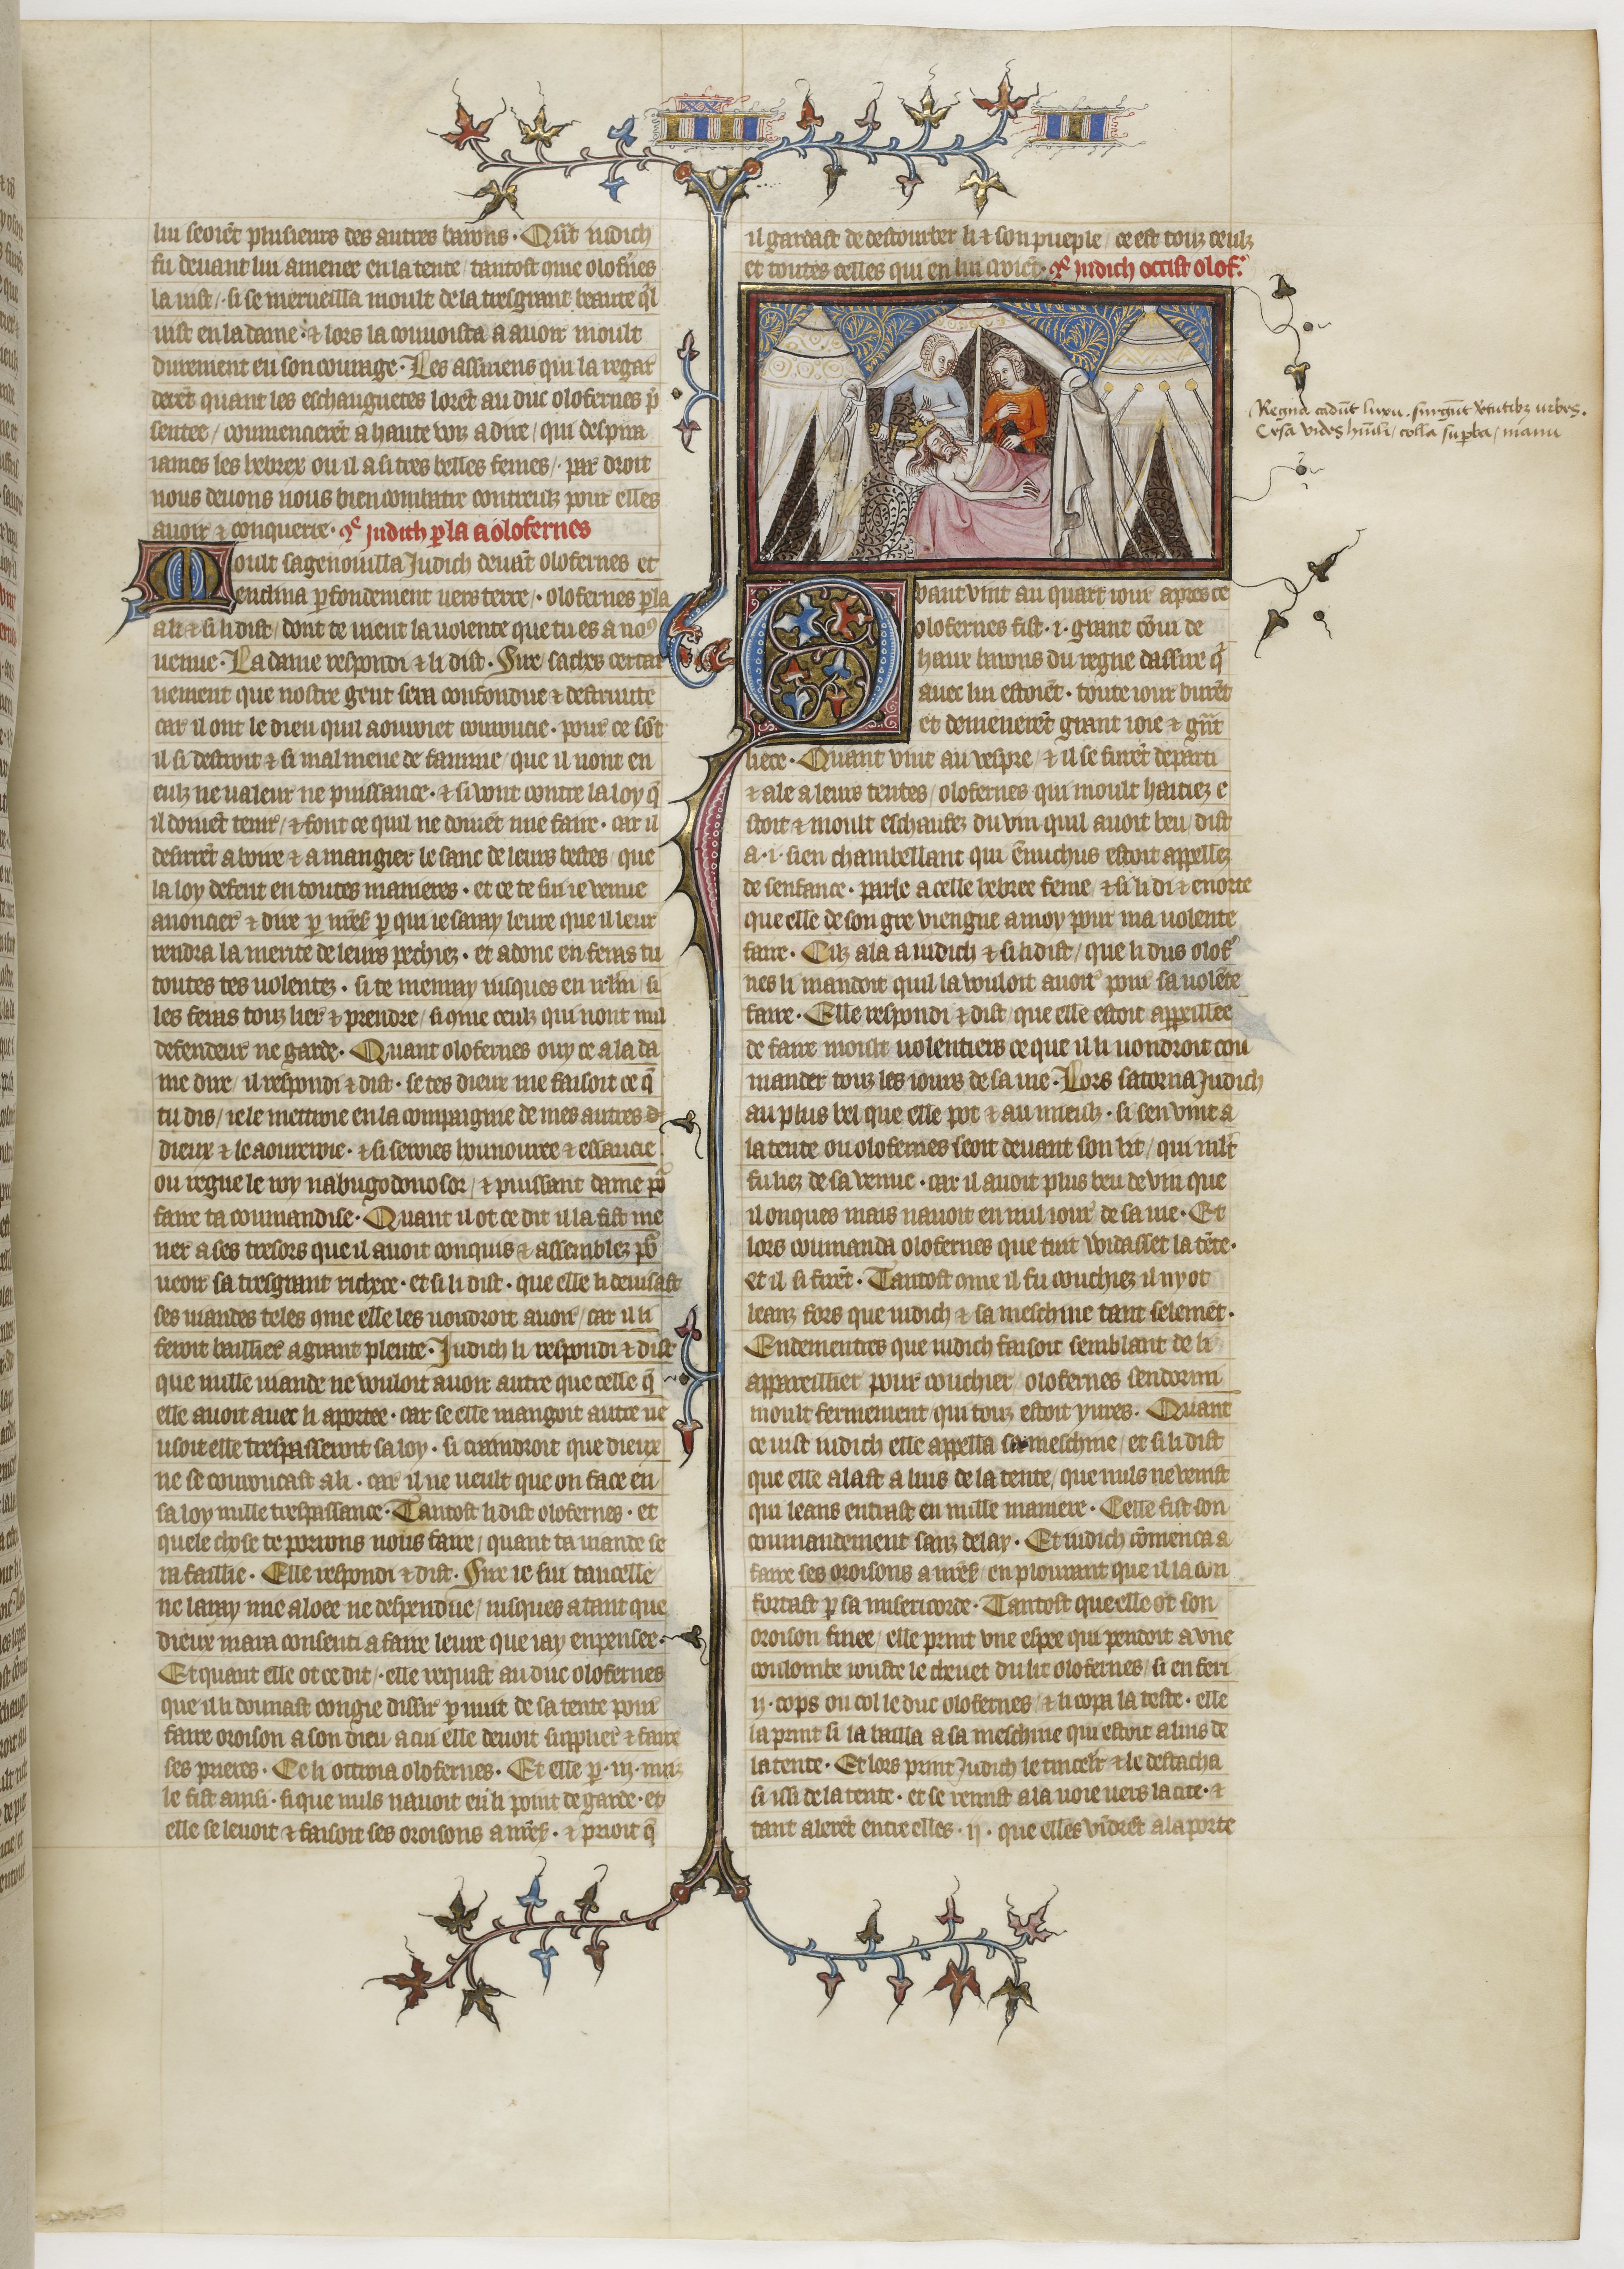 lui seoiẽt plusieurs des autres barons · Qũt iudich
fu deuant lui amenee en la tente / tantost q̃me olofñes
la uist / si se merueilla moult de la tresgrant beaute q̃l
uist en la dame · ⁊ lors la conuoita a auoir moult
durement en son courage · Les assiriens qui la regar
derẽt quant les eschauguetes lorẽt au duc olofernes p̃
sentee / commencierẽt a haute voiz a dire / qui despira
iames les hebrex ou il a si tres belles femes / par droit
nous deuons nous bien combatre contreulz pour elles
auoir ⁊ conquerre · q̃ Judith p̱la a olofernes
Moult sagenoilla Judich deuãt olofernes et
enclina p̱fondement uers terre / · olofernes p̱la
a li ⁊ si li dist / dont te uient la uolente que tu es a noꝯ
uenue · La dame respondi ⁊ li dist · Sire / saches certai
nement que nostre gent sera confondue ⁊ destruite
car il ont le dieu quil aouroiet courroucie · pour ce sõt
il si destroit ⁊ si mal mene de famine / que il nont en
eulz ne ualeur ne puissance · ⁊ si uont contre la loy q̃
il doiuẽt tenir / ⁊ font ce quil ne doiuẽt mie faire · car il
desirrẽt a boire ⁊ a mangier le sanc de leurs bestes / que
la loy defent en toutes manieres · et ce te sui ie venue
anoncier ⁊ dire p̱ nr̃e s̃ p̱ qui ie saray leure que il leur
rendra la merite de leurs pechiez · et adonc en feras tu
toutes tes uolentez · si te menray iusques en irl̃m / si
les feras touz lier ⁊ prendre / si q̃me ceulz qui nont nul
defendeur ne garde · Quant olofernes ouy ce a la da
me dire / il respondi ⁊ dist · se tes dieux me faisoit ce q̃
tu dis / ie le mettroie en la compaignie de mes autres d
dieux ⁊ le aoureroie · ⁊ si seroies hounouree ⁊ essaucie
ou regne le roy nabugodonosor / ⁊ puissant dame po᷑
faire ta coumandise · Quant il ot ce dit il la fist me
ner a ses tresors que il auoit conquis ⁊ assemblez po᷑
ueoir sa tresgrant richece · et si li dist · que elle li deuisast
ses uiandes teles q̃me elle les uoudroit auoir / car il li
feroit baillier a grant plente · Judich li respondi ⁊ dist
que nulle uiande ne vouloit auoir autre que celle q̃
elle auoit auec li aportee · car se elle mangoit autre ne
usoit elle trespasseroit sa loy · si craindroit que dieux
ne se courroucast a li · car il ne ueult que on face en
sa loy nulle trespassance · Tantost li dist olofernes · et
quele chose te porrons nous faire / quant ta uiande se
ra faillie · Elle respondi ⁊ dist · Sire ie sui taucelle
ne laray mie aloee ne despendue / iusques a tant que
dieux mara consenti a faire leure que iay enpensee ·
Et quant elle ot ce dit / · elle requist au duc olofernes
que il li dounast congie dissir p̱ nuit de sa tente pour
faire oroison a son dieu a cui elle deuoit supplier ⁊ faire
ses prieres · Ce li ottroia olofernes · Et elle p̱ · iij · nuiz
le fist ainsi · si que nuls nauoit en li point de garde · et
elle se leuoit ⁊ faisoit ses oroisons a nr̃e s̃ · ⁊ prioit q̃
il gardast de destourber li ⁊ son pueple / ce est touz ceulz
et toutes celles qui en lui croiẽt · q̃ Judich occist olof᷑
Quant vint au quart iour apres ce
olofernes fist · i · grant cõui de
haux barons du regne dassire q̃
auec lui estoiẽt · toute iour burẽt
et demenerẽt grant ioie ⁊ grñt
liece · Quant vint au vespre / ⁊ il se furẽt departi
⁊ ale a leurs tentes / olofernes qui moult haitiez e
stoit ⁊ moult eschaufez du vin quil auoit beu / dist
a · i · sien chambellant qui ẽnuchus estoit appellez
de senfance · parle a celle hebree feme / ⁊ si li di ⁊ enorte
que elle de son gre viengne a moy pour ma uolente
faire · Cilz ala a iudich ⁊ si li dist / que li dus olof᷑
nes li mandoit quil la vouloit auoir pour sa uolẽte
faire · Elle respondi ⁊ dist / que elle estoit appeillee
de faire moult uolentiers ce que il li uoudroit cou
mander touz les iours de sa uie · Lors satorna Judich
au plus bel que elle pot ⁊ au mieulz · si sen vint a
la tente ou olofernes seoit deuant son lit / qui ml̃t
fu liez de sa venue · car il auoit plus beu de vin que
il onques mais nauoit en nul iour de sa uie · Et
lors coumanda olofernes que tuit widassẽt la tẽte ·
et il si firẽt · Tantost cme il fu couchiez il ny ot
leanz fors que iudich ⁊ sa meschine tant selemẽt ·
Endementres que iudich faisoit semblant de li
appareillier pour couchier / olofernes sendormi
moult fermement / qui touz estoit yures · Quant
ce uist iudich elle appella sa meschine / et si li dist
que elle alast a luis de la tente / que nuls ne venist
qui leans entrast en nulle maniere · Celle fist son
coumandement sanz delay · Et iudich cõmenca a
faire ses oroisons a nr̃e s̃ / en plourant que il la con
fortast p̱ sa misericorde · Tantost que elle ot son
oroison finee / elle print vne espee qui pendoit a vne
coulombe iouste le cheuet du lit olofernes / si en feri
ij · cops ou col le duc olofernes / ⁊ li copa la teste · elle
la print si la bailla a sa meschine qui estoit a luis de
la tente · Et lors print Judich le tincelr ⁊ le destacha
si issi de la tente · et se remist a la uoie uers la cite · ⁊
tant alerẽt entre elles · ij · que elles vidrẽt a la porte
Regna cadũt luxu · surgũt v̓tutibꝫ urbes ·
Cesa vides hũili / colla sup̱ba / manu